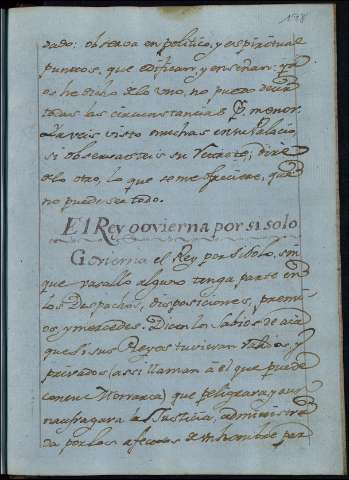 178
dado: observa en politico, y espiritual
puntos, que edifican, y enseñan: ya
os he dicho de lo uno, no puedo decir
todas las circunstancias
havreis visto muchas en su Palacio
si observasteis su Retrete; diré
de lo otro, lo que se me ofreciere, que
no puede ser todo.
El Rey govierna por si solo
Govierna el Rey, por si solo, sin
que vasallo alguno tenga parte en
los Despachos, disposiciones, premi-
os, y mercedes. Dicen los Sabios de
que si sus Reyes tuvieran Validos, y
privados (assi llaman à el que puede
con un Monarca) que peligrara, y aun
naufragara la Justicia, administra
da por los afectos de un hombre par